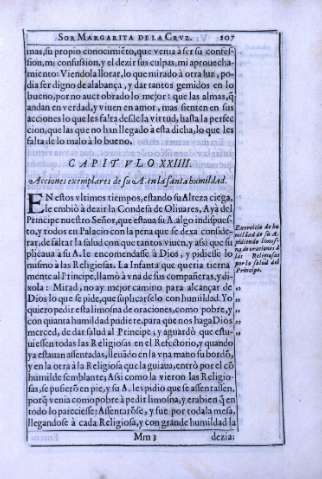 SOR MARGARITA DE LA CRVZ. 207
mas, su propio conocimiẽto, que venia à ser su confes-
sion, mi confusion, y el dezir sus culpas, mi aprouecha-
miento: Viendola llorar, lo que mirado à otra luz, po-
dia ser digno de alabança, y dar tantos gemidos en lo
bueno, por no auer obrado lo mejor: que las almas, q̃
andan en verdad, y viuen en amor, mas sienten en sus
acciones lo que les falta desde la virtud, hasta la perse
cion, que las que no han llegado à esta dicha, lo que les
falta de lo malo à lo bueno.
CAPITVLO XXIIII.
Acciones exemplares de su A. en la santa humildad.
EN estos vltimos tiempos, estando su Alteza ciega,
le embiò à dezir la Condesa de Oliuares, Aya del
Principe nuestro Señor, que estaua su A. algo indispues-
to, y todos en Palacio con la pena que se dexa conside-
rar, de faltar la salud con que tantos viuen, y assi que su
plicaua à su A. le encomendasse à Dios, y pidiesse lo
mismo à las Religiosas. La Infanta que queria tierna
mente al Principe, llamò à vna de sus compañeras, y di-
xola: Mirad, no ay mejor camino para alcançar de
Dios lo que se pide, que suplicarselo con humildad. Yo
quiero pedir esta limosna de oraciones, como pobre, y
con quanta humildad pudiere, para que nos haga Dios
merced, de dar salud al Principe; y aguardò que estu-
uiessen todas las Religiosas en el Refectorio, y quando
ya estauan assentadas, lleuado en la vna mano su bordõ,
y en la otra à la Religiosa que la guiaua, entrò por el cõ
humilde semblante: Assi como la vieron las Religio-
sas, se pusierõ en pie, y su A. les pidio que se assentassen,
porq̃ venia como pobre à pedir limosna, y era bien q̃ en
todo lo pareciesse: Assentarõse, y fue por toda la mesa,
llegandose à cada Religiosa, y con grande humildad la
Mm 3 dezia:
Exercicio de hu
mildad de su A.
pidiendo limos-
na de oraciones à
las Religiosas
por la salud del
Principe.